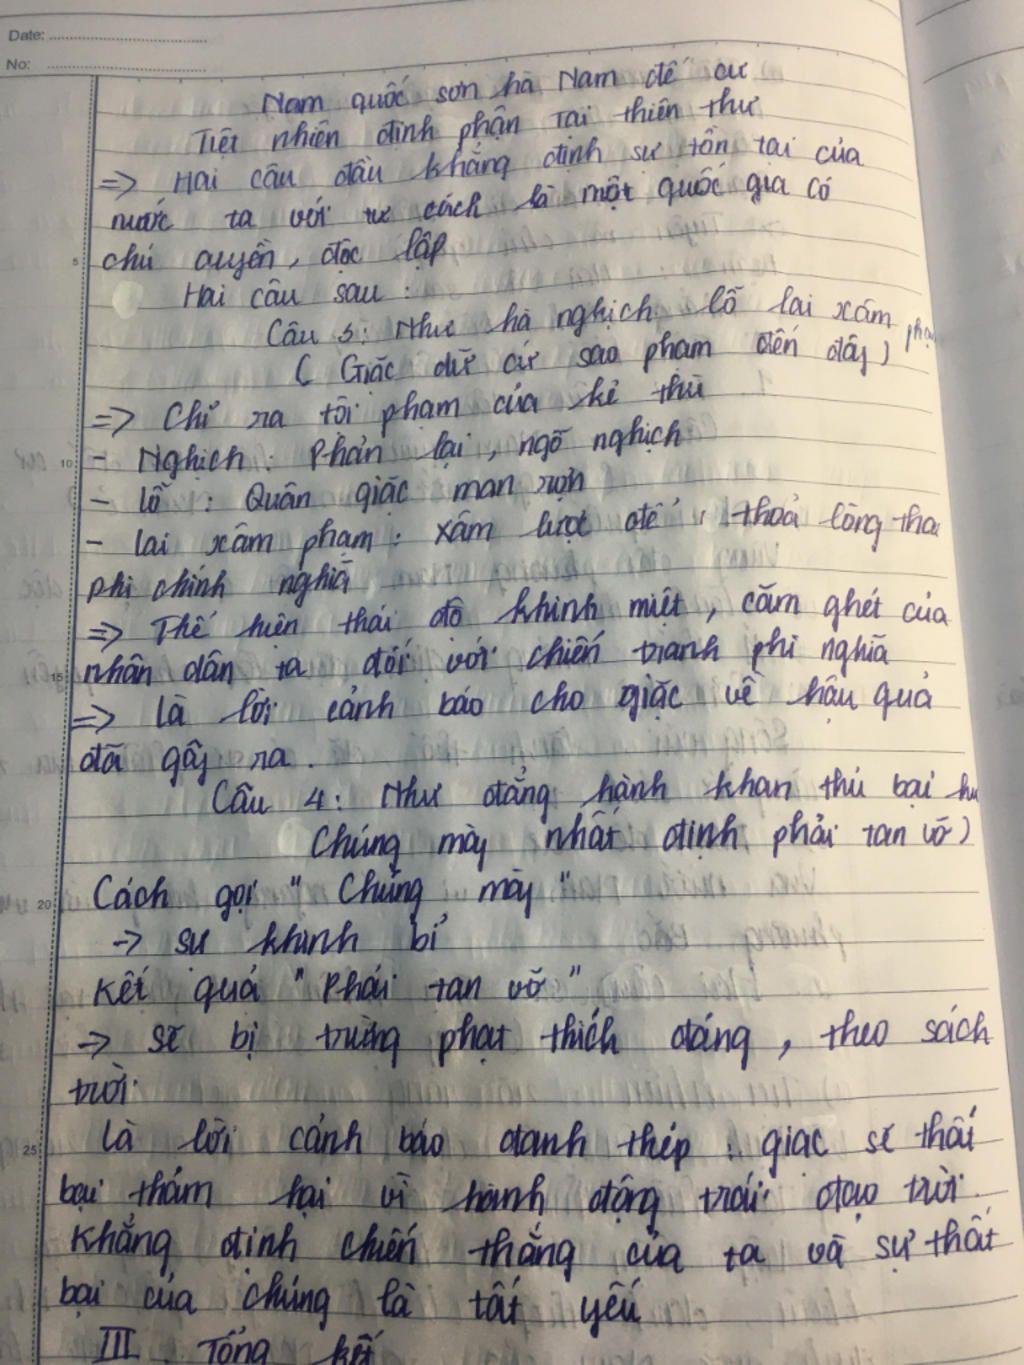 Date:
No:
Nam quốc sơn hà Nam đế cư
Tiệt nhiên định phận tại thiên thư
=> Hai câu đầu khẳng định sự tồn tại của
nước ta với tư cách là một quốc gia có
5 chủ quyền, độc lập
Hai câu sau :
Câu 3: Như hà nghịch lỗ lai xâm phạm
( Giặc dữ cớ sao phạm đến đây )
=> Chỉ ra tội phạm của kẻ thù
10 - Nghịch : Phản lại, ngỗ nghịch
- lỗ : Quân giặc man rợn
- lai xâm phạm : xâm lược để thoả lòng tham
phi chính nghĩa
=> Thể hiện thái độ khinh miệt, căm ghét của
15 nhân dân ta đối với chiến tranh phi nghĩa
=> là lời cảnh báo cho giặc về hậu quả
đã gây ra.
Câu 4: Như đẳng hành khan thủ bại hư
Chúng mày nhất định phải tan vỡ )
20 Cách gọi " Chúng mày "
-> sự khinh bỉ
kết quả " Phải tan vỡ "
-> sẽ bị trừng phạt thích đáng, theo sách
trời
25 là lời cảnh báo đanh thép : giặc sẽ thất
bại thảm hại vì hành động trái đạo trời.
khẳng định chiến thắng của ta và sự thất
bại của chúng là tất yếu
III Tổng kết